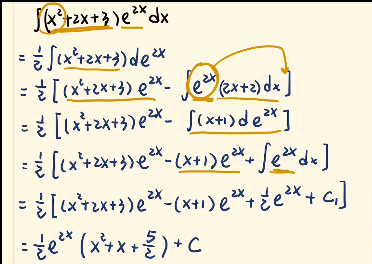 ∫(x²+2x+3)e^{2x}dx
= 1/2 ∫(x²+2x+3)de^{2x}
= 1/2 [(x²+2x+3)e^{2x} - ∫e^{2x}(2x+2)dx]
= 1/2 [(x²+2x+3)e^{2x} - ∫(x+1)de^{2x}]
= 1/2 [(x²+2x+3)e^{2x} - (x+1)e^{2x} + ∫e^{2x}dx]
= 1/2 [(x²+2x+3)e^{2x} - (x+1)e^{2x} + 1/2 e^{2x} + C₁]
= 1/2 e^{2x} (x²+x+5/2) + C